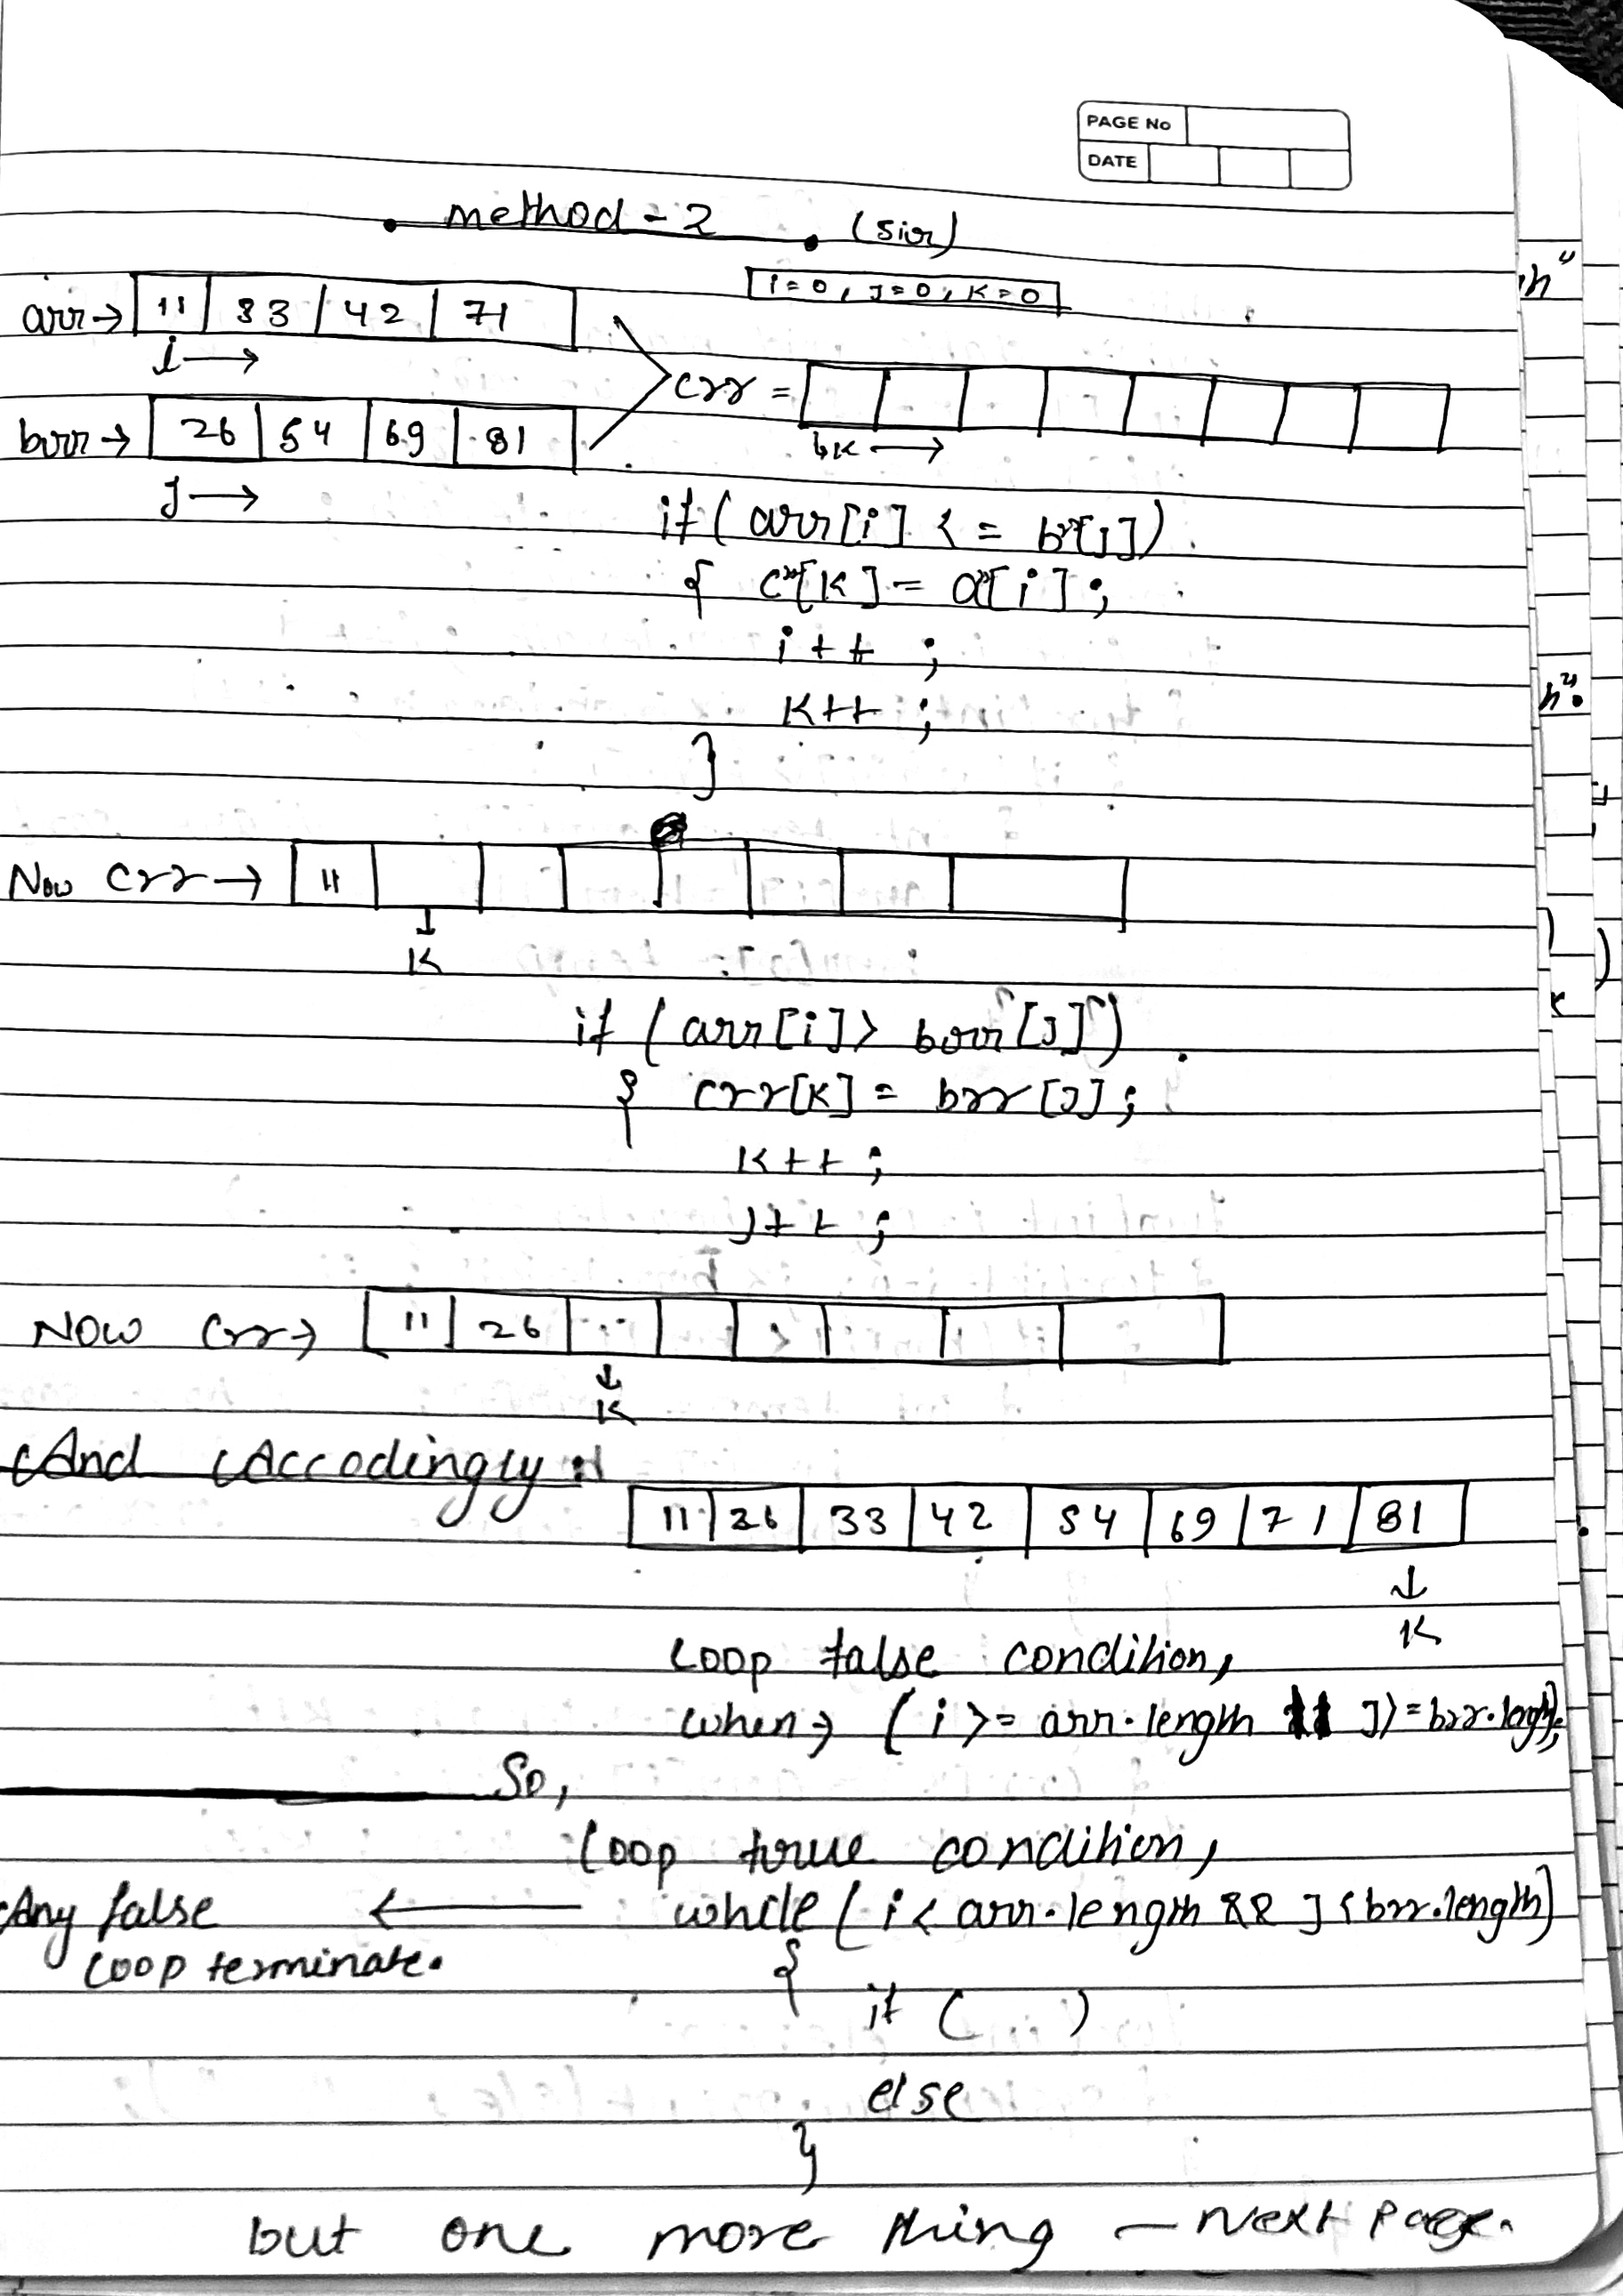 PAGE No
DATE
method - 2 (sir)
i=0, J=0, K=0
arr→ 11 33 42 71
i→
crr =
brr→ 26 54 69 81
K→
J→
if (arr[i] <= brr[J])
{ crr[K] = arr[i];
i++ ;
K++ ;
}
Now crr→ 11
↓
K
if (arr[i] > brr[J])
{ crr[K] = brr[J];
K++ ;
J++ ;
}
Now Crr→ 11 26
↓
K
And Accodingly :
11 26 33 42 54 69 71 81
↓
K
Loop false condition,
when→ (i >= arr.length || J >= brr.length);
So,
Loop true condition,
Any false ← while (i < arr.length && J < brr.length)
Loop terminate. {
if ( )
else
}
but one more thing – Next page.